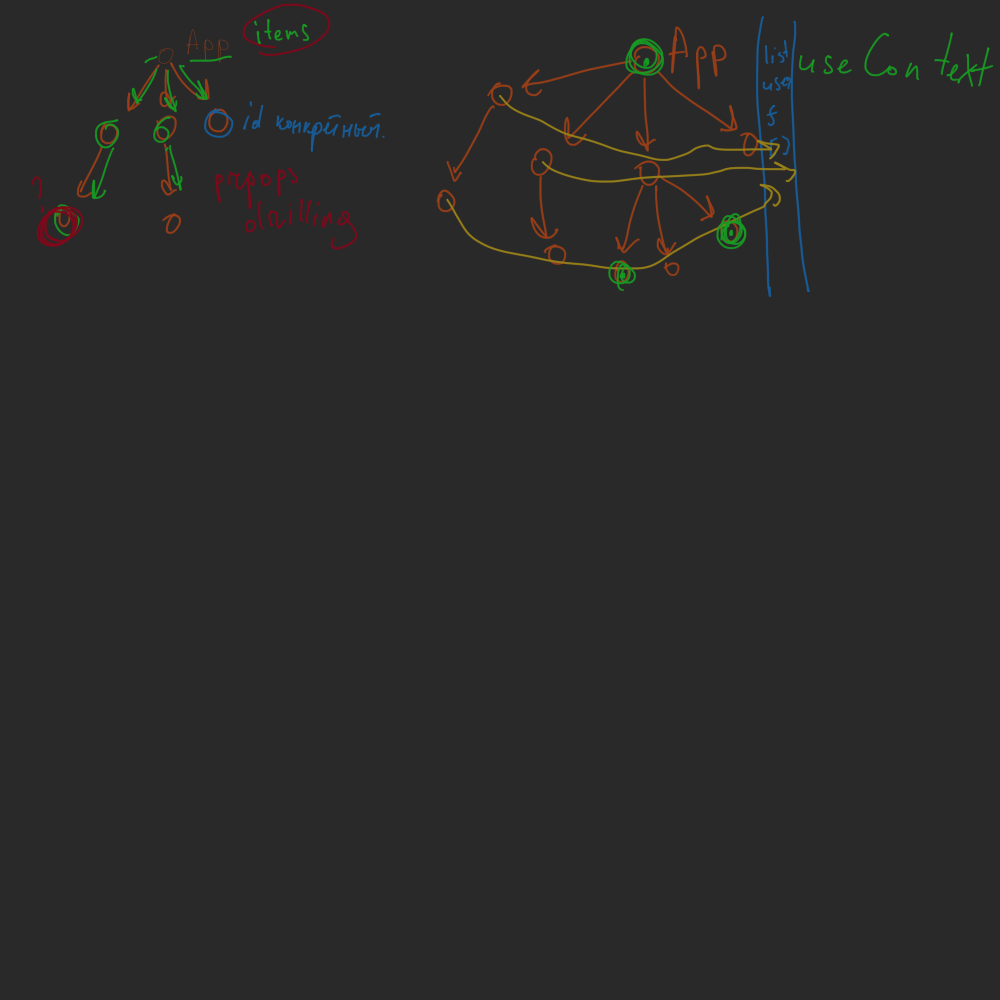 App items
id конкретный.
?
prpops
drilling
App
list
user
f
[]
useContext